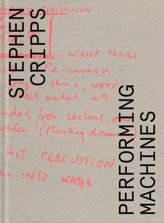 STEPHEN
CRIPPS
PERFORMING
MACHINES
PERCUSSION
WATER TROUGH,
Percussion
wood
metal
from ceiling, or
water (floating drums)
HIT PERCUSSION
INTO WATER